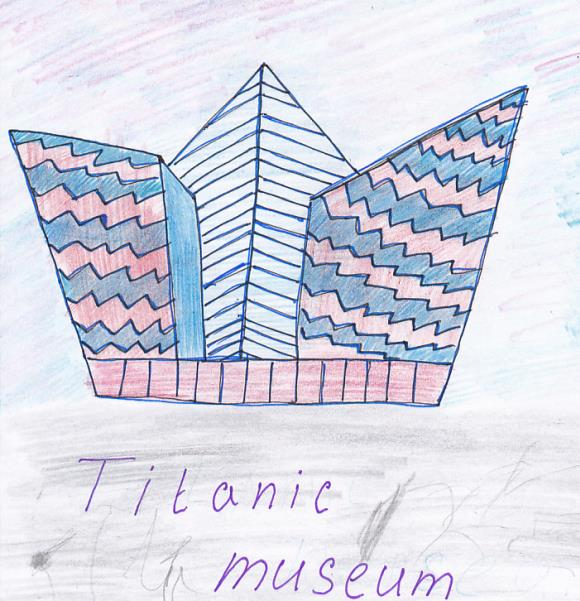 Titanic
museum